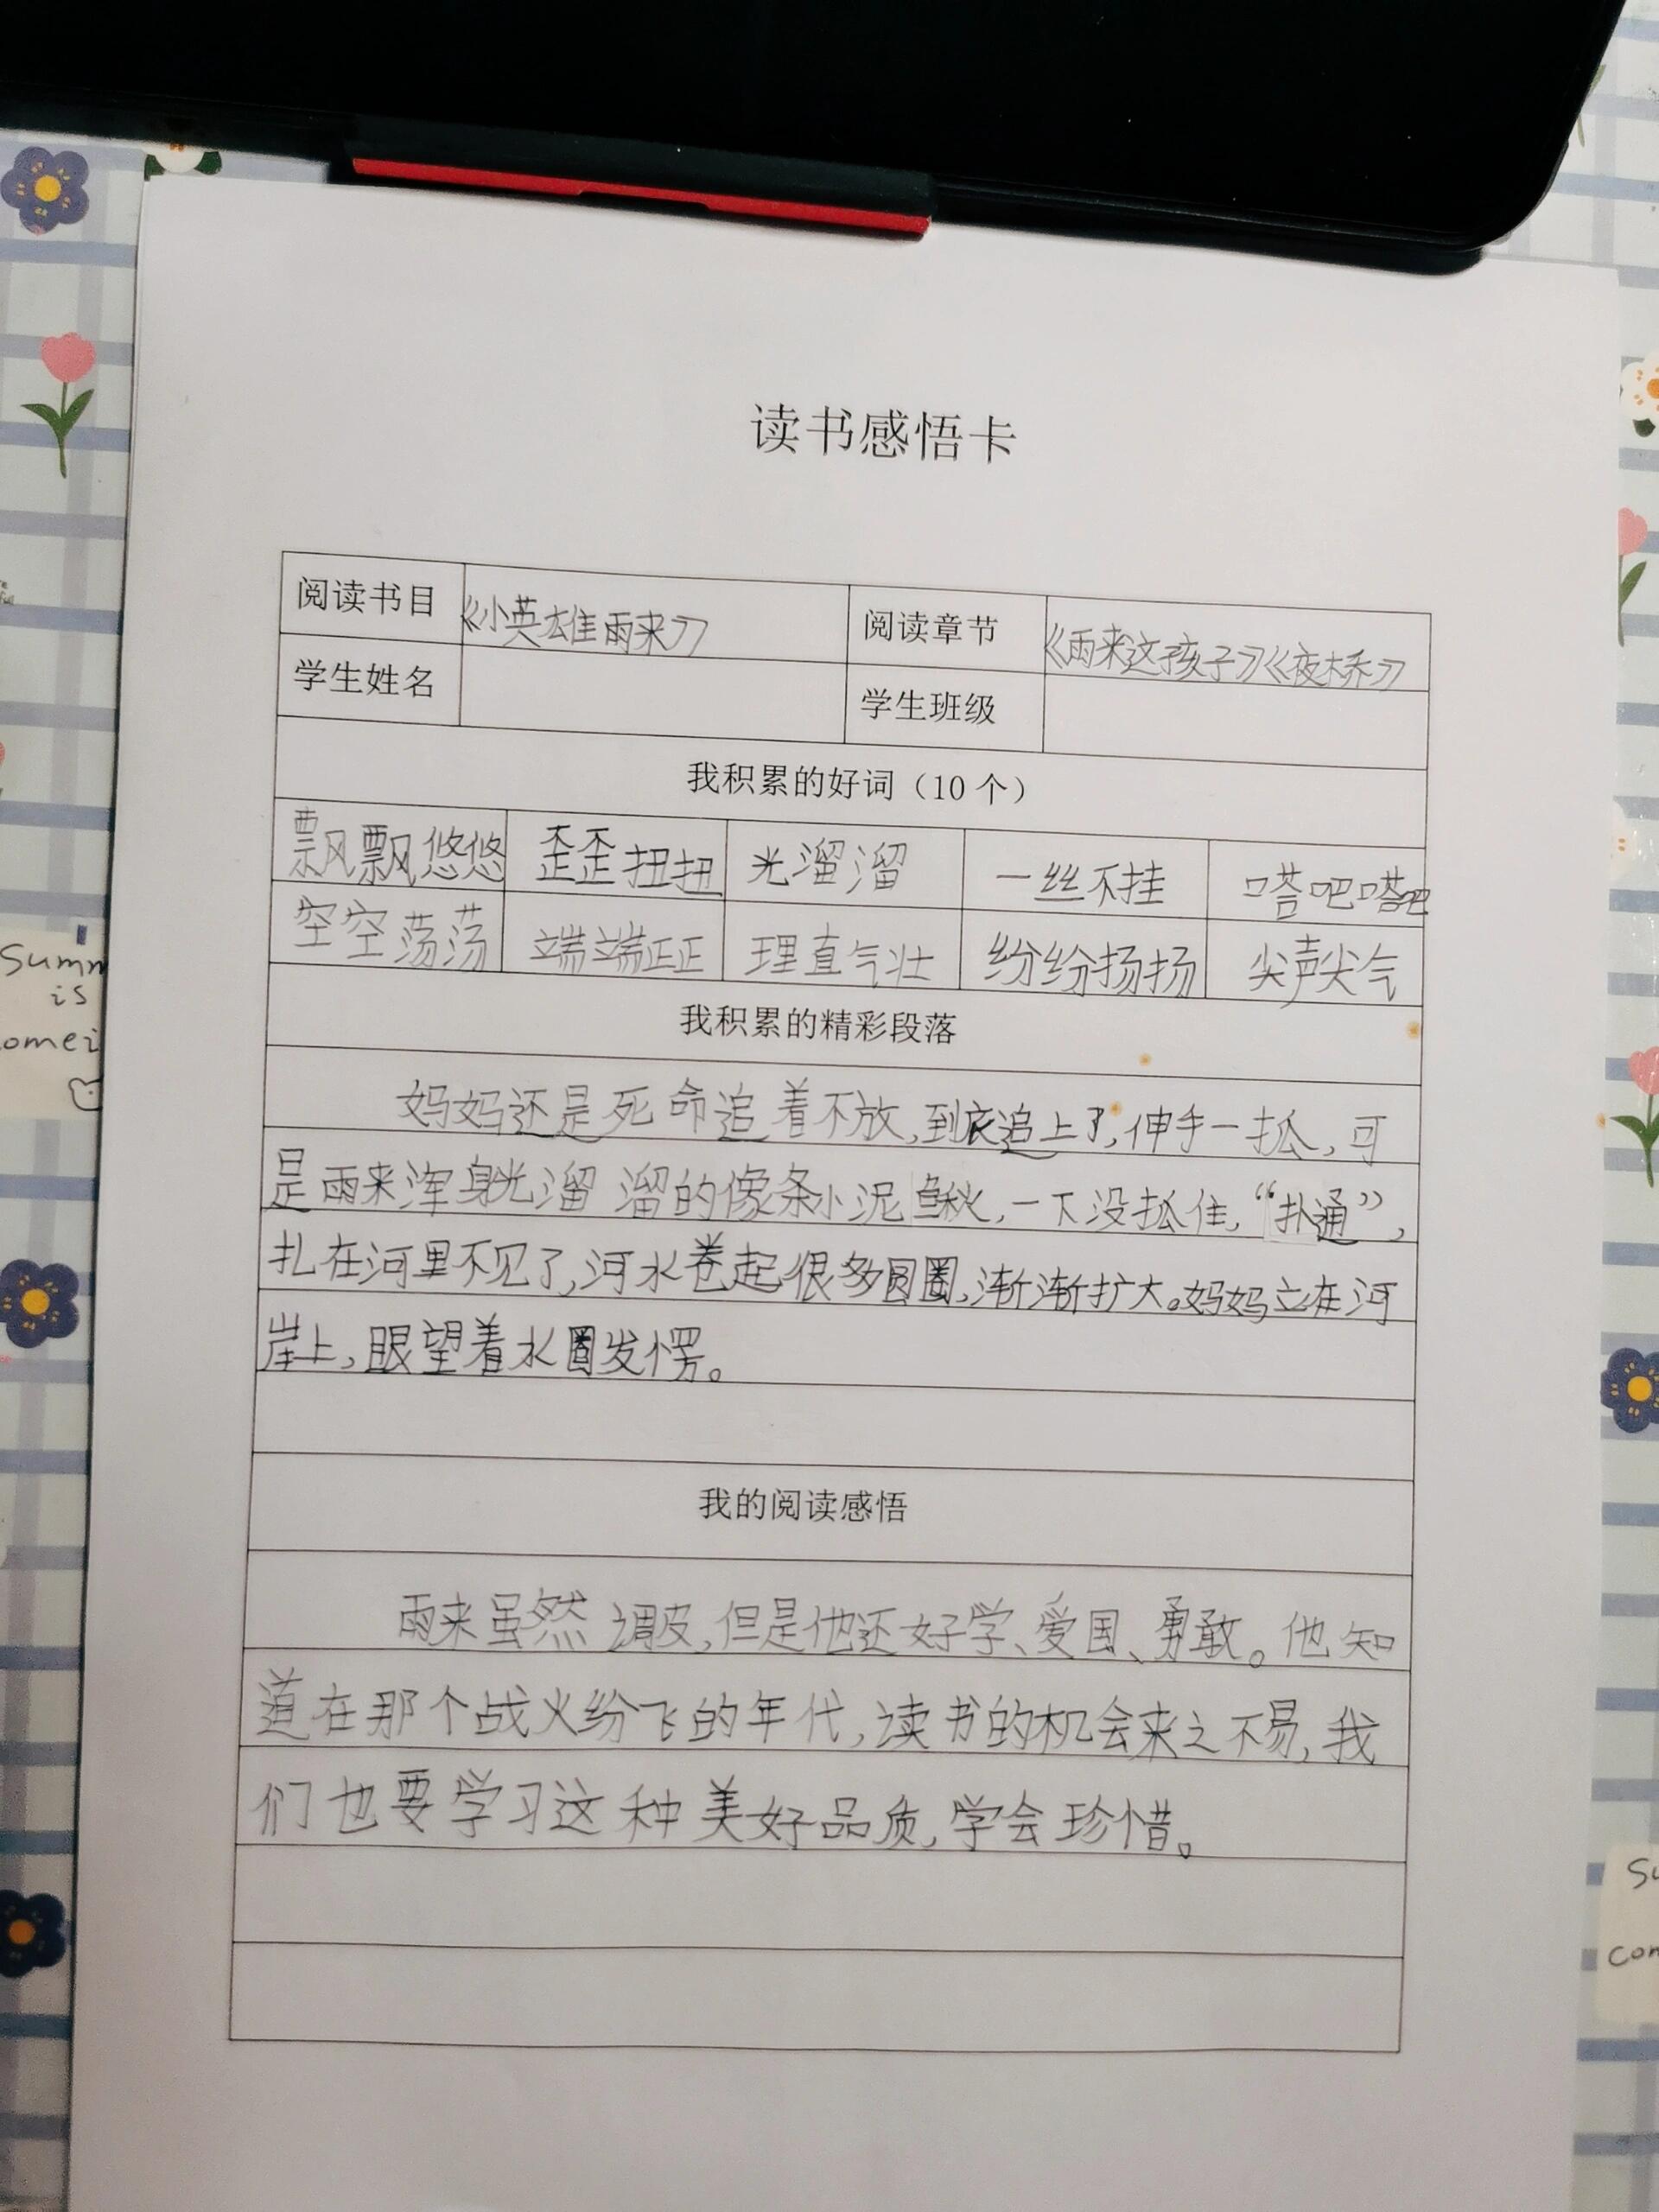 读书感悟卡
阅读书目 《小英雄雨来》 阅读章节 《雨来这孩子》《夜桥》
学生姓名 学生班级
我积累的好词（10个）
飘飘悠悠 歪歪扭扭 光溜溜 一丝不挂 嗒吧嗒吧
空空荡荡 端端正正 理直气壮 纷纷扬扬 尖声尖气
我积累的精彩段落
妈妈还是死命追着不放,到底追上了,伸手一抓,可
是雨来浑身光溜溜的像条小泥鳅,一下没抓住,“扑通”,
扎在河里不见了,河水卷起很多圆圈,渐渐扩大。妈妈立在河
崖上,眼望着水圈发愣。
我的阅读感悟
雨来虽然调皮,但是他还好学、爱国、勇敢。他知
道在那个战火纷飞的年代,读书的机会来之不易,我
们也要学习这种美好品质,学会珍惜。
Summ
is
omei
Su
com